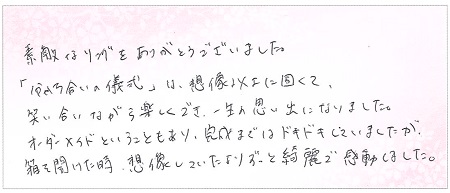 素敵なリングをありがとうございました。
「分かち合いの儀式」は、想像以上に固くて、
笑い合いながら楽しくでき、一生の思い出になりました。
オーダーメイドということもあり、完成まではドキドキしていましたが、
箱を開けた時、想像していたよりずーっと綺麗で感動しました。